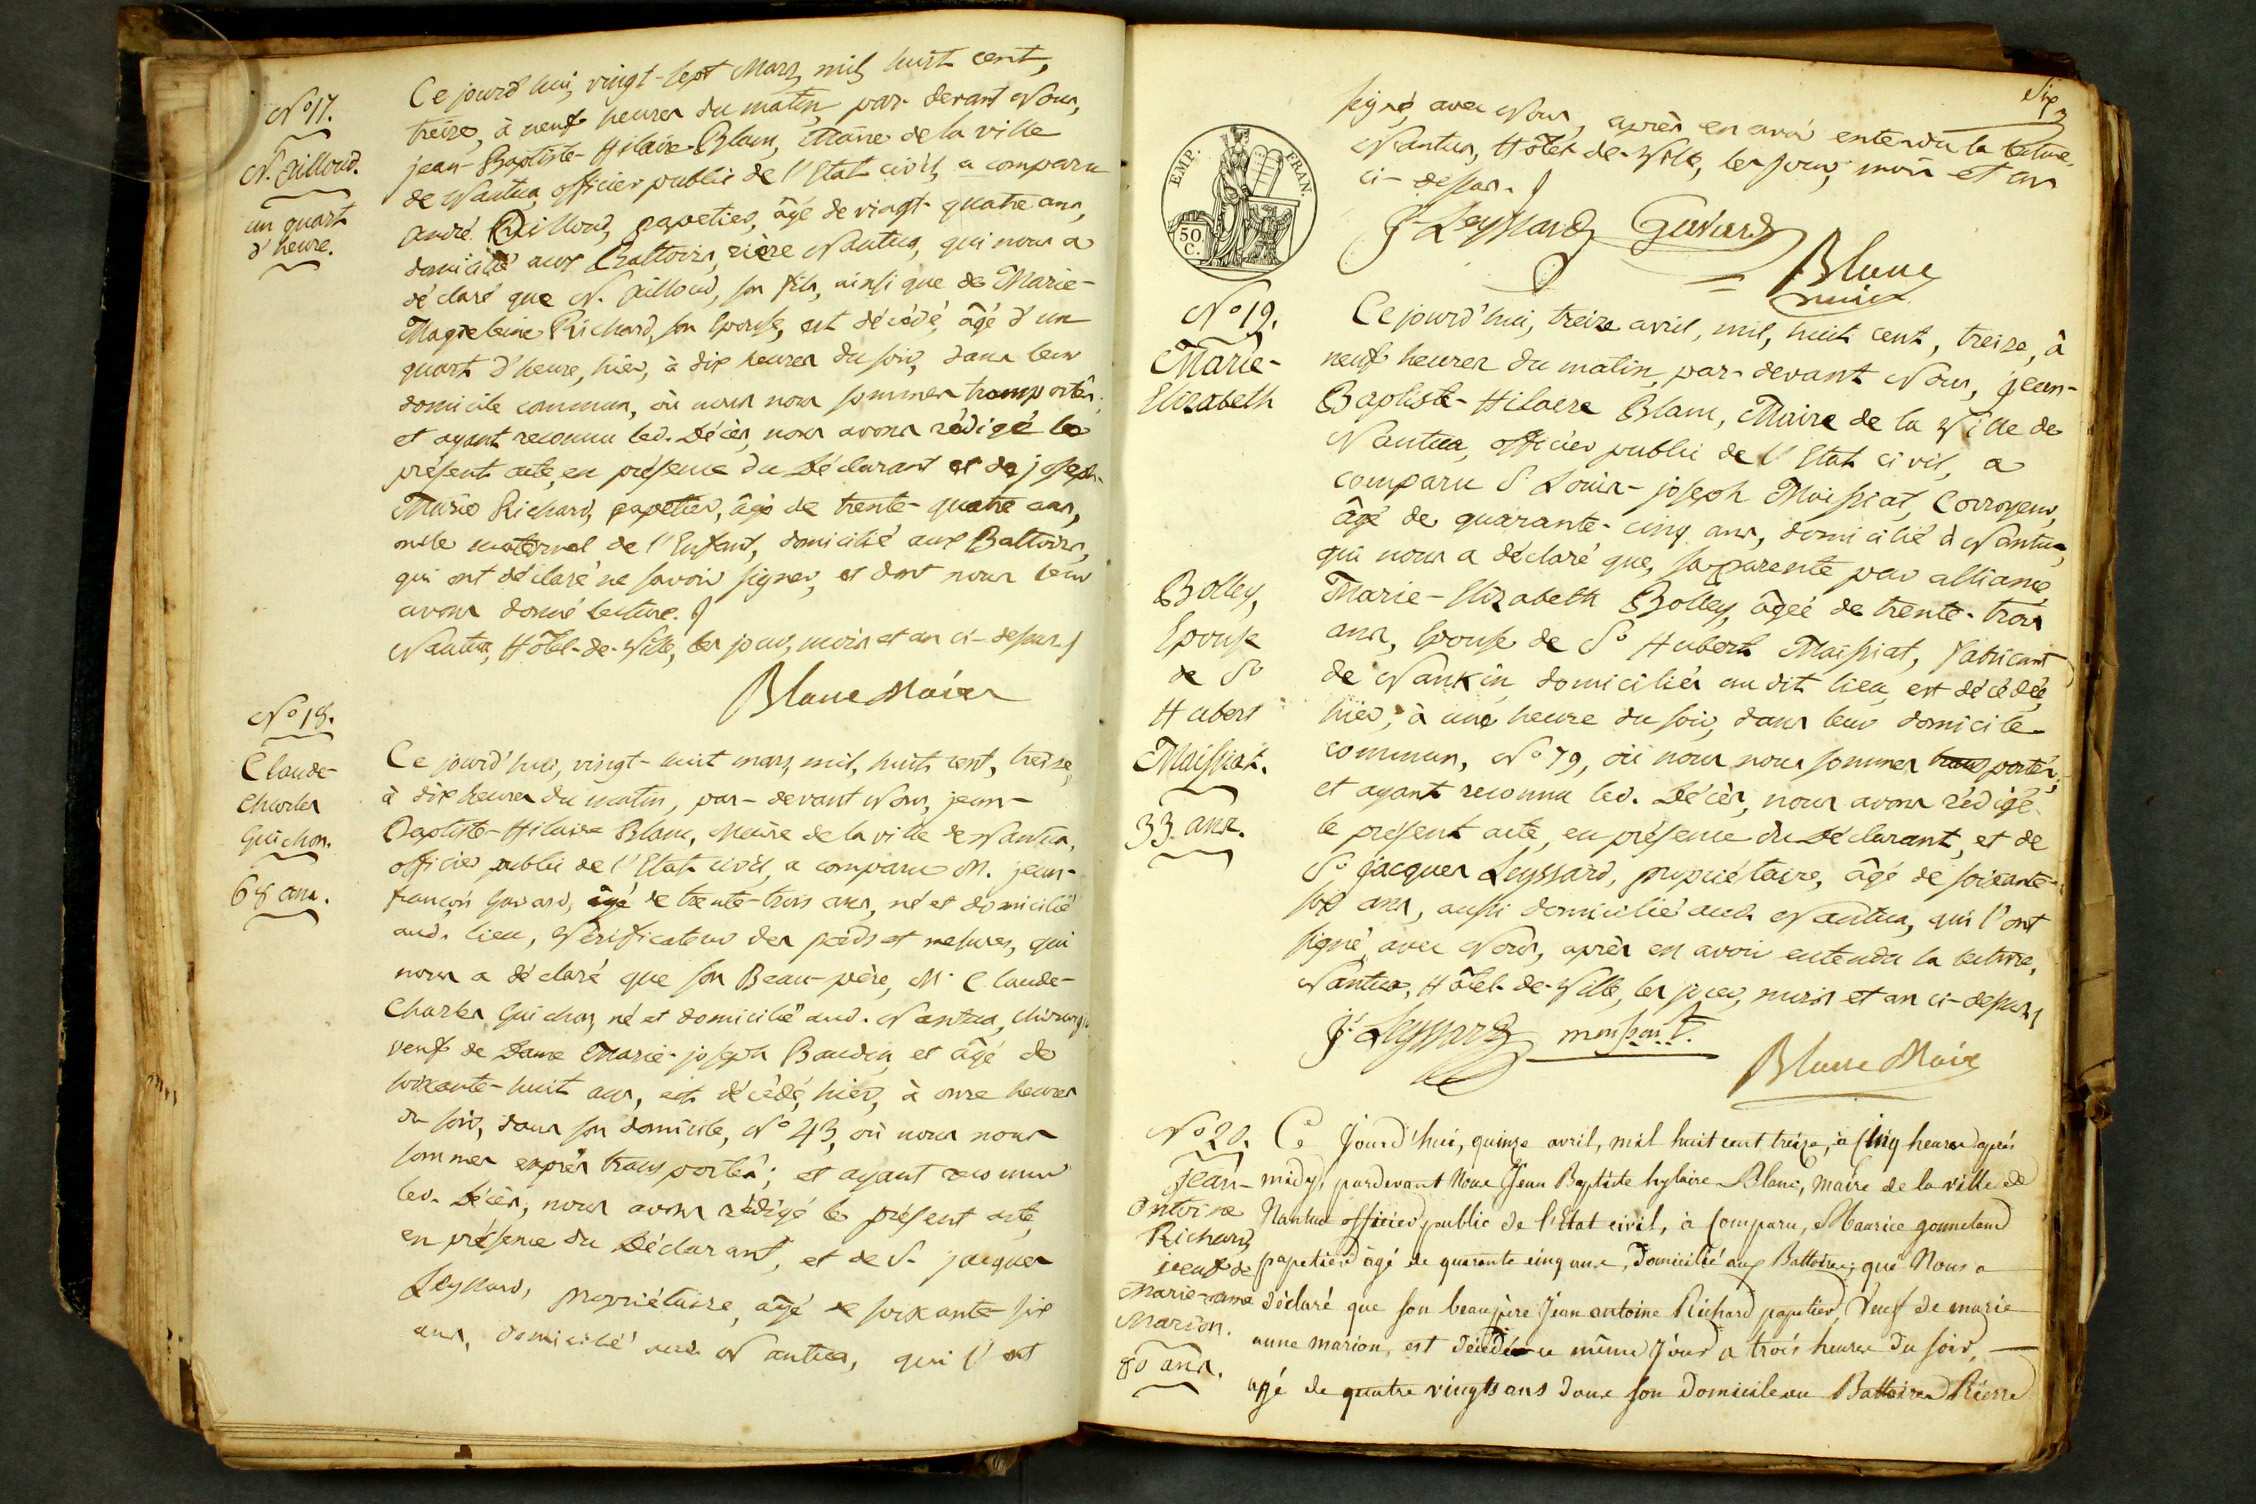 N.º 17.
N. Pilloud.
un quart
d'heure.
Ce jourd'hui, vingt-sept Mars, mil, huit cent,
treize, à neuf heures du matin, par-devant Nous,
jean-Baptiste-Hilaire Blanc, Maire de la ville
de Nantua, officier public de l'Etat civil, a comparu
andré Pilloud, papetier, âgé de vingt-quatre ans,
domicilié aux Battoirs, rière Nantua, qui nous a
déclaré que N. Pilloud, son fils, ainsi que de Marie-
Magdeleine Richard, son Epouse, est décédé, âgé d'un
quart d'heure, hier, à dix heures du soir, dans leur
domicile commun, où nous nous sommes transportés;
et ayant reconnu led. Décès, nous avons rédigé le
présent acte, en présence du Déclarant et de joseph-
Marie Richard, papetier, âgé de trente-quatre ans,
oncle maternel de l'Enfant, domicilié aux Battoirs,
qui ont déclaré ne savoir signer, et dont nous leur
avons donné lecture.
Nantua, Hôtel-de-Ville, les jour, mois et an ci-dessus.
Blanc Maire
N.º 18.
Claude-
Charles
Guichon.
68 ans.
Ce jourd'hui, vingt-huit mars, mil, huit cent, treize,
à dix heures du matin, par-devant Nous, jean-
Baptiste-Hilaire Blanc, Maire de la ville de Nantua,
officier public de l'Etat civil, a comparu M. jean-
françois Gavard, âgé de trente-trois ans, né et domicilié
aud. lieu, Vérificateur des poids et mesures, qui
nous a déclaré que son Beau-père, M. Claude-
Charles Guichon, né et domicilié aud. Nantua, Chirurgien
veuf de Dame Marie-joseph Baudin, et âgé de
soixante-huit ans, est décédé, hier, à onze heures
du soir, dans son domicile, N.º 43, où nous nous
sommes exprès transportés; et ayant reconnu
led. Décès, nous avons rédigé le présent acte,
en présence du Déclarant, et de S. jacques
Leyssard, propriétaire, âgé de soixante-six
ans, domicilié aud. Nantua, qui l'ont
Six
EMP. FRAN.
50 C.
signé, avec Nous, après en avoir entendu la lecture.
Nantua, Hôtel-de-Ville, les jour, mois et an
ci-dessus.
J. Leyssard Gavard
Blanc
maire
N.º 19.
Marie-
Elizabeth
Bolley,
Epouse
de Sr
Hubert
Maissiat.
33. ans.
Ce jourd'hui, treize avril, mil, huit cent, treize, à
neuf heures du matin, par-devant Nous, jean-
Baptiste-Hilaire Blanc, Maire de la Ville de
Nantua, officier public de l'Etat civil, a
comparu S. Louis-joseph Maissiat, Corroyeur,
âgé de quarante-cinq ans, domicilié à Nantua,
qui nous a déclaré que, sa parente par alliance
Marie-Elizabeth Bolley, âgée de trente-trois
ans, Epouse de Sr Hubert Maissiat, fabricant
de Nankin, domiciliés au dit lieu, est décédée,
hier, à une heure du soir, dans leur domicile
commun, N.º 79, où nous nous sommes transportés,
et ayant reconnu led. Décès, nous avons rédigé
le présent acte, en présence du Déclarant, et de
S. jacques Leyssard, propriétaire, âgé de soixante-
six ans, aussi domicilié aud. Nantua, qui l'ont
signé, avec Nous, après en avoir entendu la lecture.
Nantua, Hôtel-de-Ville, les jour, mois et an ci-dessus.
J. Leyssard
Blanc Maire
N.º 20.
jean-
Antoine
Richard
veuf de
Marie-anne
Marion.
80 ans.
Ce Jourd'hui, quinze avril, mil huit cent treize, à Cinq heures après
midy, pardevant Nous Jean Baptiste hylaire Blanc, Maire de la ville de
Nantua officier public de l'Etat civil, à Comparu, Maurice gonneland
papetier âgé de quarante cinq ans, Domicilié aux Battoires, qui Nous a
déclaré que son beaupère Jean antoine Richard papetier, Veuf de marie
anne marion, est décédé ce même Jour a trois heures du soir,
agé de quatre vingts ans dans son Domicile au Battoires Rierre